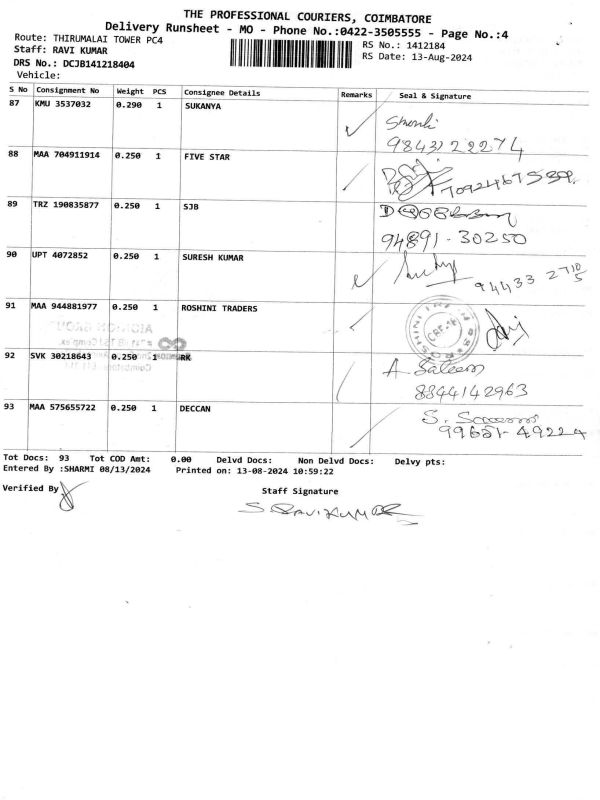 THE PROFESSIONAL COURIERS, COIMBATORE
Delivery Runsheet - MO - Phone No.:0422-3505555 - Page No.:4
Route: THIRUMALAI TOWER PC4
Staff: RAVI KUMAR
RS No.: 1412184
RS Date: 13-Aug-2024
DRS No.: DCJB141218404
Vehicle:
S No Consignment No Weight PCS Consignee Details Remarks Seal & Signature
87 KMU 3537032 0.290 1 SUKANYA
98431 22274
88 MAA 704911914 0.250 1 FIVE STAR
89 TRZ 190835877 0.250 1 SJB
94891-30250
90 UPT 4072852 0.250 1 SURESH KUMAR
94433 27105
91 MAA 944881977 0.250 1 ROSHINI TRADERS
92 SVK 30218643 0.250 1 RK
A Saleem
8844142963
93 MAA 575655722 0.250 1 DECCAN
99651-49224
Tot Docs: 93 Tot COD Amt: 0.00 Delvd Docs: Non Delvd Docs: Delvy pts:
Entered By :SHARMI 08/13/2024 Printed on: 13-08-2024 10:59:22
Verified By
Staff Signature
S RAVIKUMAR